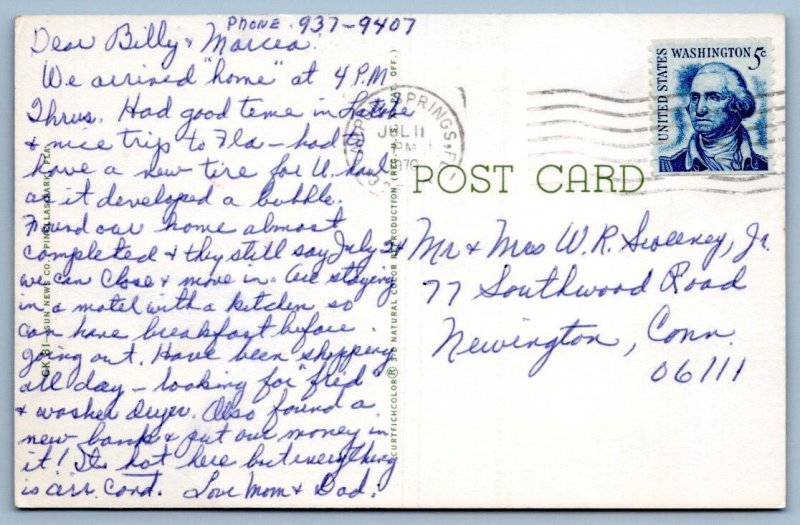 PHONE 937-9407
Dear Billy & Marcea.
We arrived "home" at 4 P.M
Thurs. Had good time in
& nice trip to Fla - had to
have a new tire for U. haul
as it developed a bubble.
Found our home almost
completed & they still say July 24
we can close & move in. Are staying
in a motel with a kitchen so
can have breakfast before
going out. Have been shopping
all day - looking for "frid
& washer dryer. Also found a
new bank & put our money in
it! Its hot here but everything
is air. cond. Love Mom & Dad.
SPRINGS, FL
JUL 11
PM
1970
UNITED STATES
WASHINGTON 5c
POST CARD
Mr & Mrs W. R. Sweeney, Jr.
77 Southwood Road
Newington, Conn.
06111
CK 31 - SUN NEWS CO., PINELLAS PARK, FLA.
CURTEICHCOLOR® 3-D NATURAL COLOR REPRODUCTION (REG. U.S.A. PAT. OFF.)